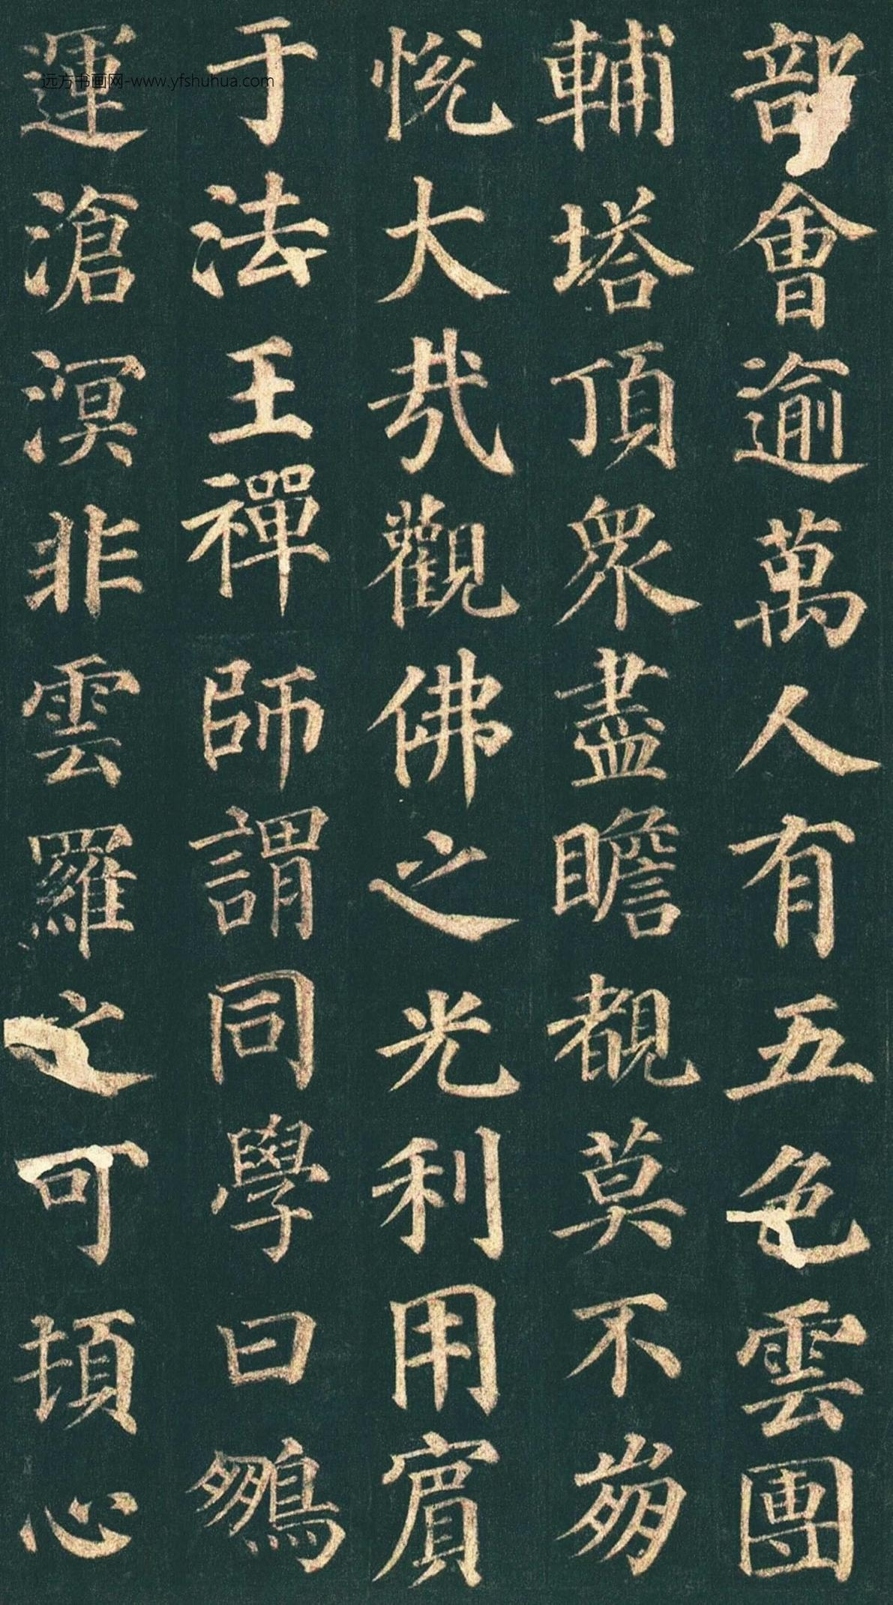 部會逾萬人有五色雲團
輔塔頂衆盡瞻覩莫不崩
悅大哉觀佛之光利用賓
于法王禪師謂同學曰鵬
運滄溟非雲羅之可頓心
远方书画网-www.yfshuhua.com